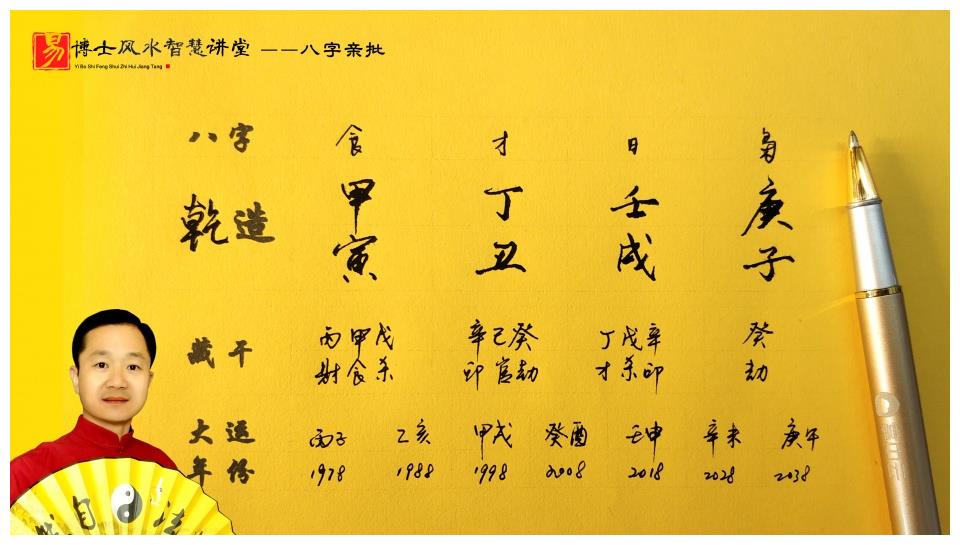 易 博士风水智慧讲堂 ——八字亲批
Yi Bo Shi Feng Shui Zhi Hui Jiang Tang
八字 食 才 日 枭
乾造 甲 丁 壬 庚
寅 丑 戌 子
藏干 丙甲戊 辛己癸 丁戊辛 癸
财食杀 印官劫 才杀印 劫
大运 丙子 乙亥 甲戌 癸酉 壬申 辛未 庚午
年份 1978 1988 1998 2008 2018 2028 2038